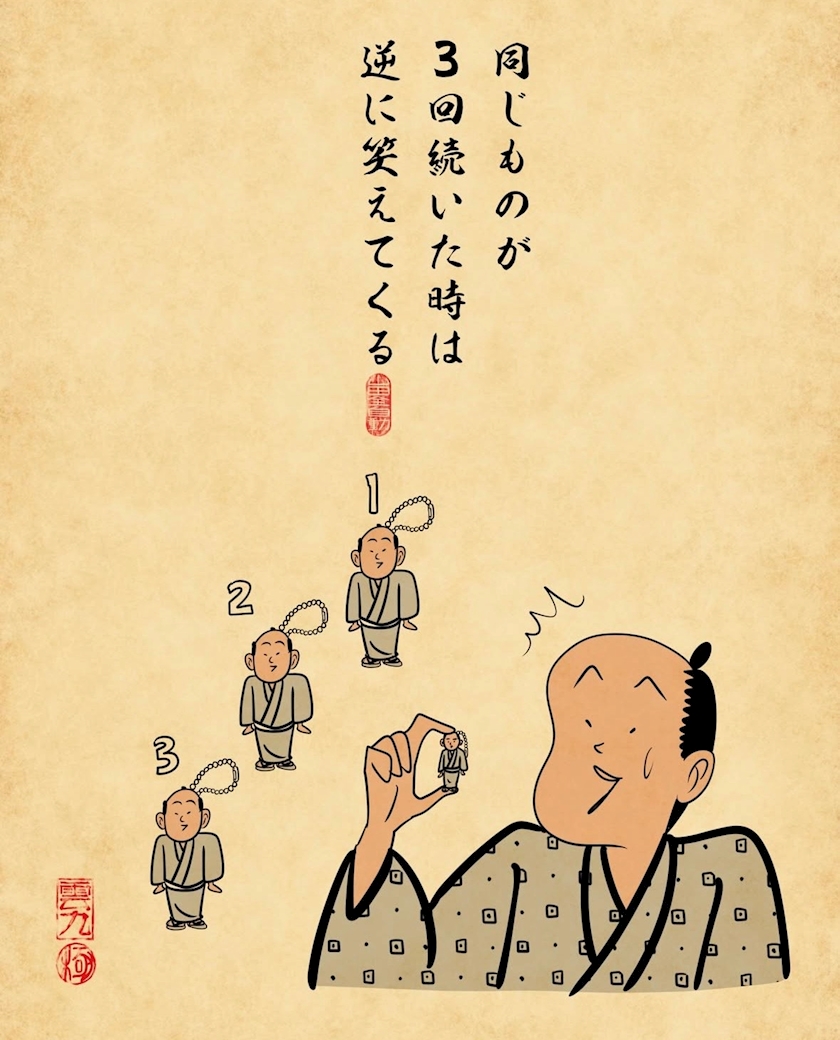 同じものが
3回続いた時は
逆に笑えてくる
1
2
3
雲九